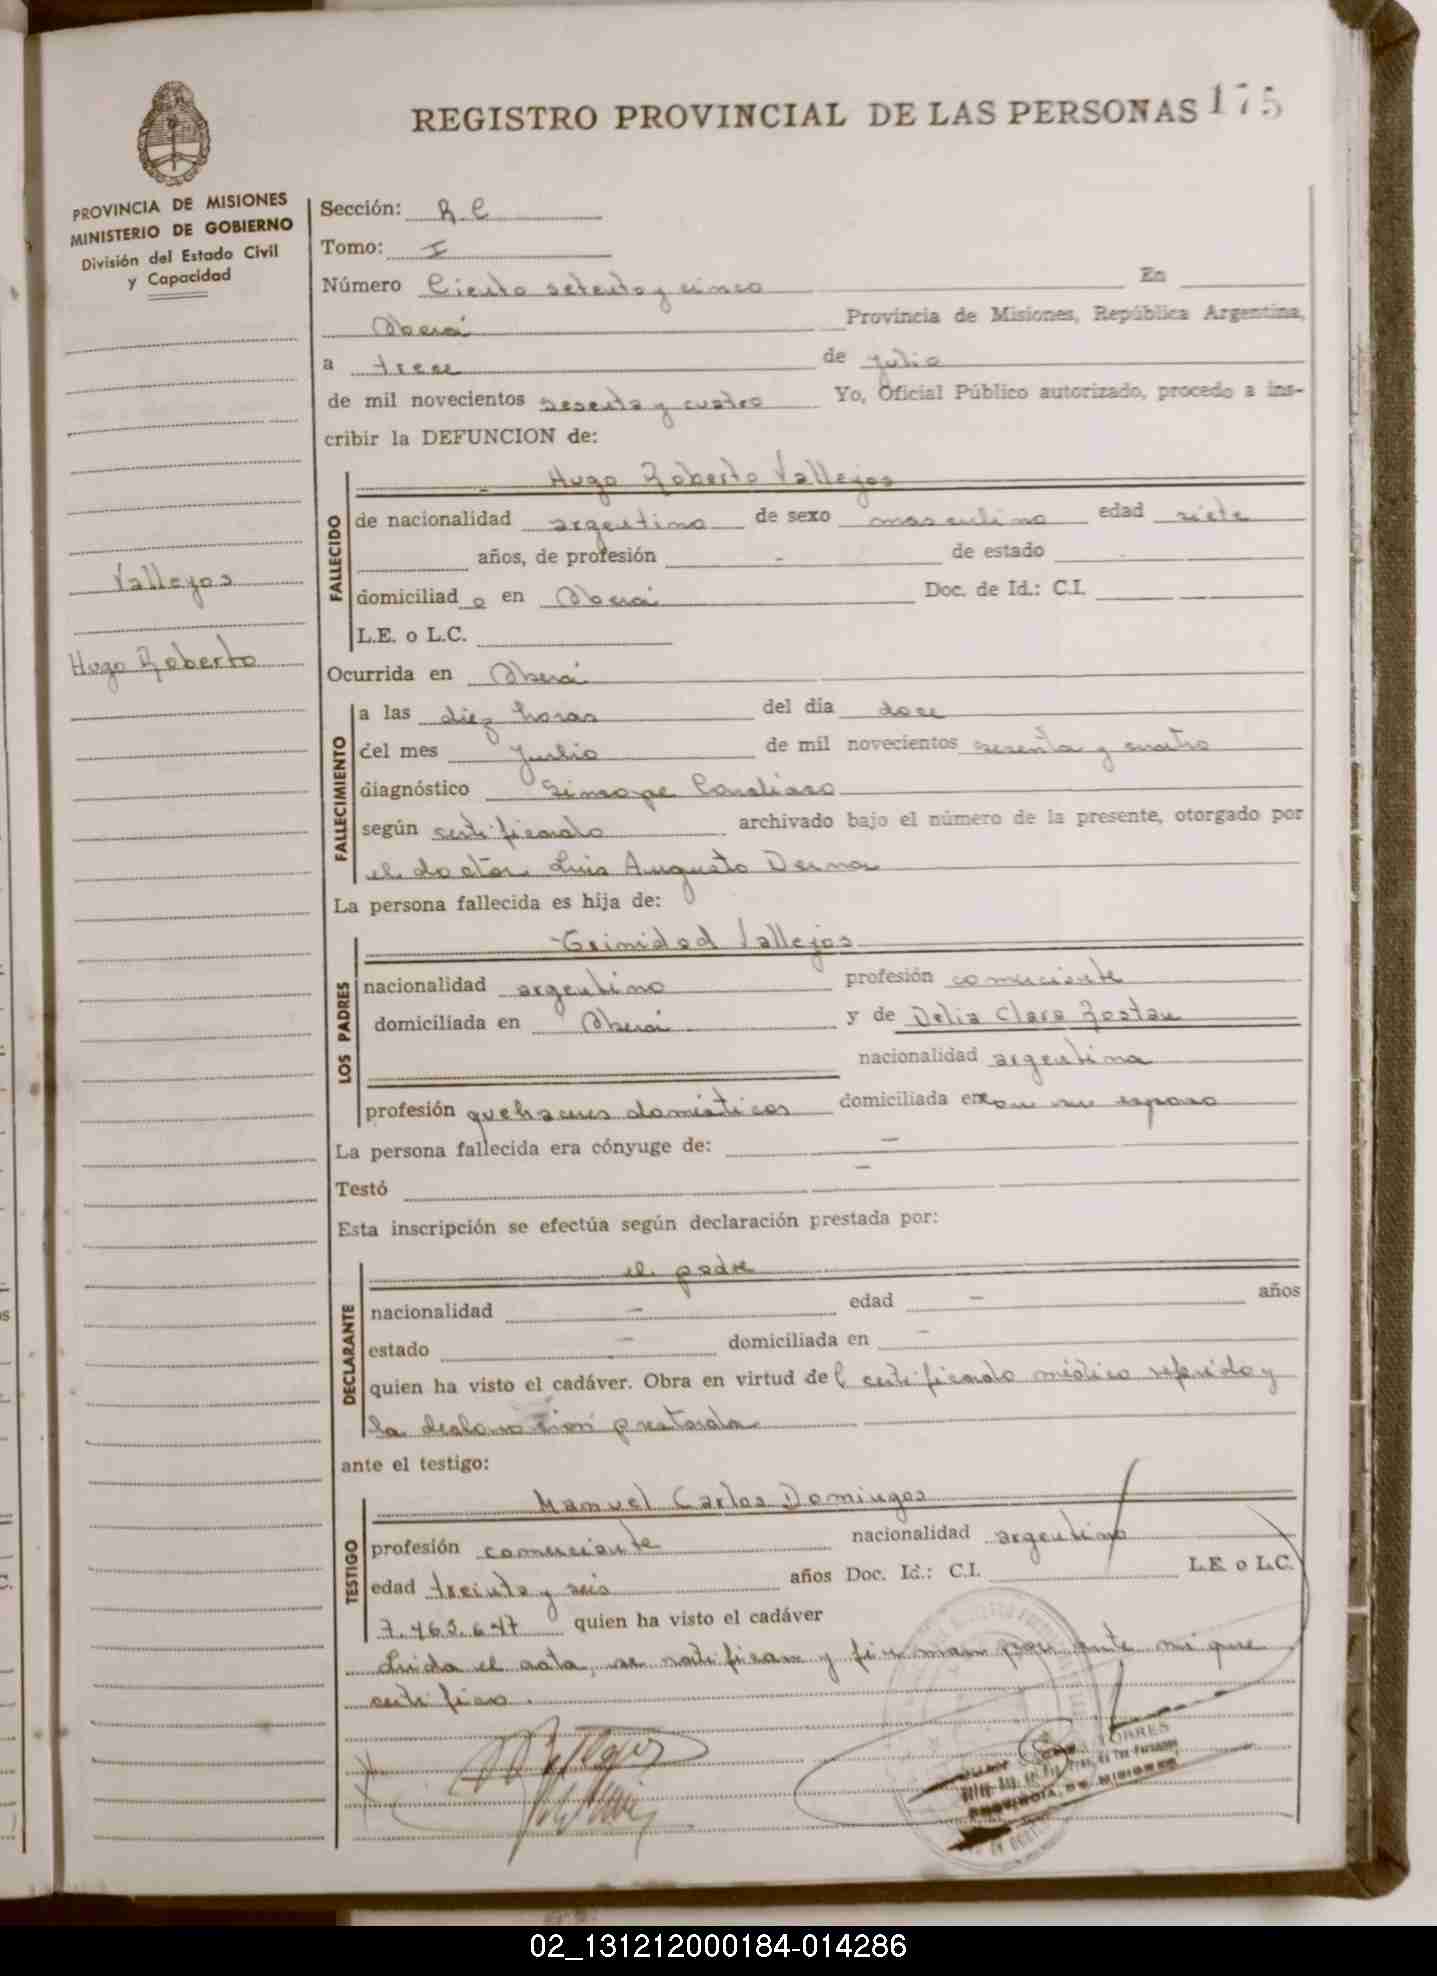 REGISTRO PROVINCIAL DE LAS PERSONAS 175
PROVINCIA DE MISIONES
MINISTERIO DE GOBIERNO
División del Estado Civil
y Capacidad
Vallejos
Hugo Roberto
Sección: R C
Tomo: I
Número Ciento setenta y cinco En
Oberá Provincia de Misiones, República Argentina,
a trece de julio
de mil novecientos sesenta y cuatro Yo, Oficial Público autorizado, procedo a ins-
cribir la DEFUNCION de:
FALLECIDO
Hugo Roberto Vallejos
de nacionalidad argentino de sexo masculino edad siete
años, de profesión - de estado
domiciliad o en Oberá Doc. de Id.: C.I.
L.E. o L.C.
Ocurrida en Oberá
FALLECIMIENTO
a las diez horas del día doce
del mes Julio de mil novecientos sesenta y cuatro
diagnóstico Sincope Cardiaco
según certificado archivado bajo el número de la presente, otorgado por
el doctor Luis Augusto Derna
La persona fallecida es hija de:
LOS PADRES
Trinidad Vallejos
nacionalidad argentino profesión comerciante
domiciliada en Oberá y de Delia Clara
nacionalidad argentina
profesión quehaceres domésticos domiciliada en con su esposo
La persona fallecida era cónyuge de: -
Testó -
Esta inscripción se efectúa según declaración prestada por:
DECLARANTE
el padre
nacionalidad - edad - años
estado - domiciliada en -
quien ha visto el cadáver. Obra en virtud del certificado médico referido y
la declaración prestada
ante el testigo:
TESTIGO
Manuel Carlos Domingos
profesión comerciante nacionalidad argentino
edad treinta y seis años Doc. Id.: C.I. L.E. o L.C.
7.463.647 quien ha visto el cadáver
Leida el acta, se ratifican y firman por ante mi que
certifico.
PROVINCIA DE MISIONES
02_131212000184-014286